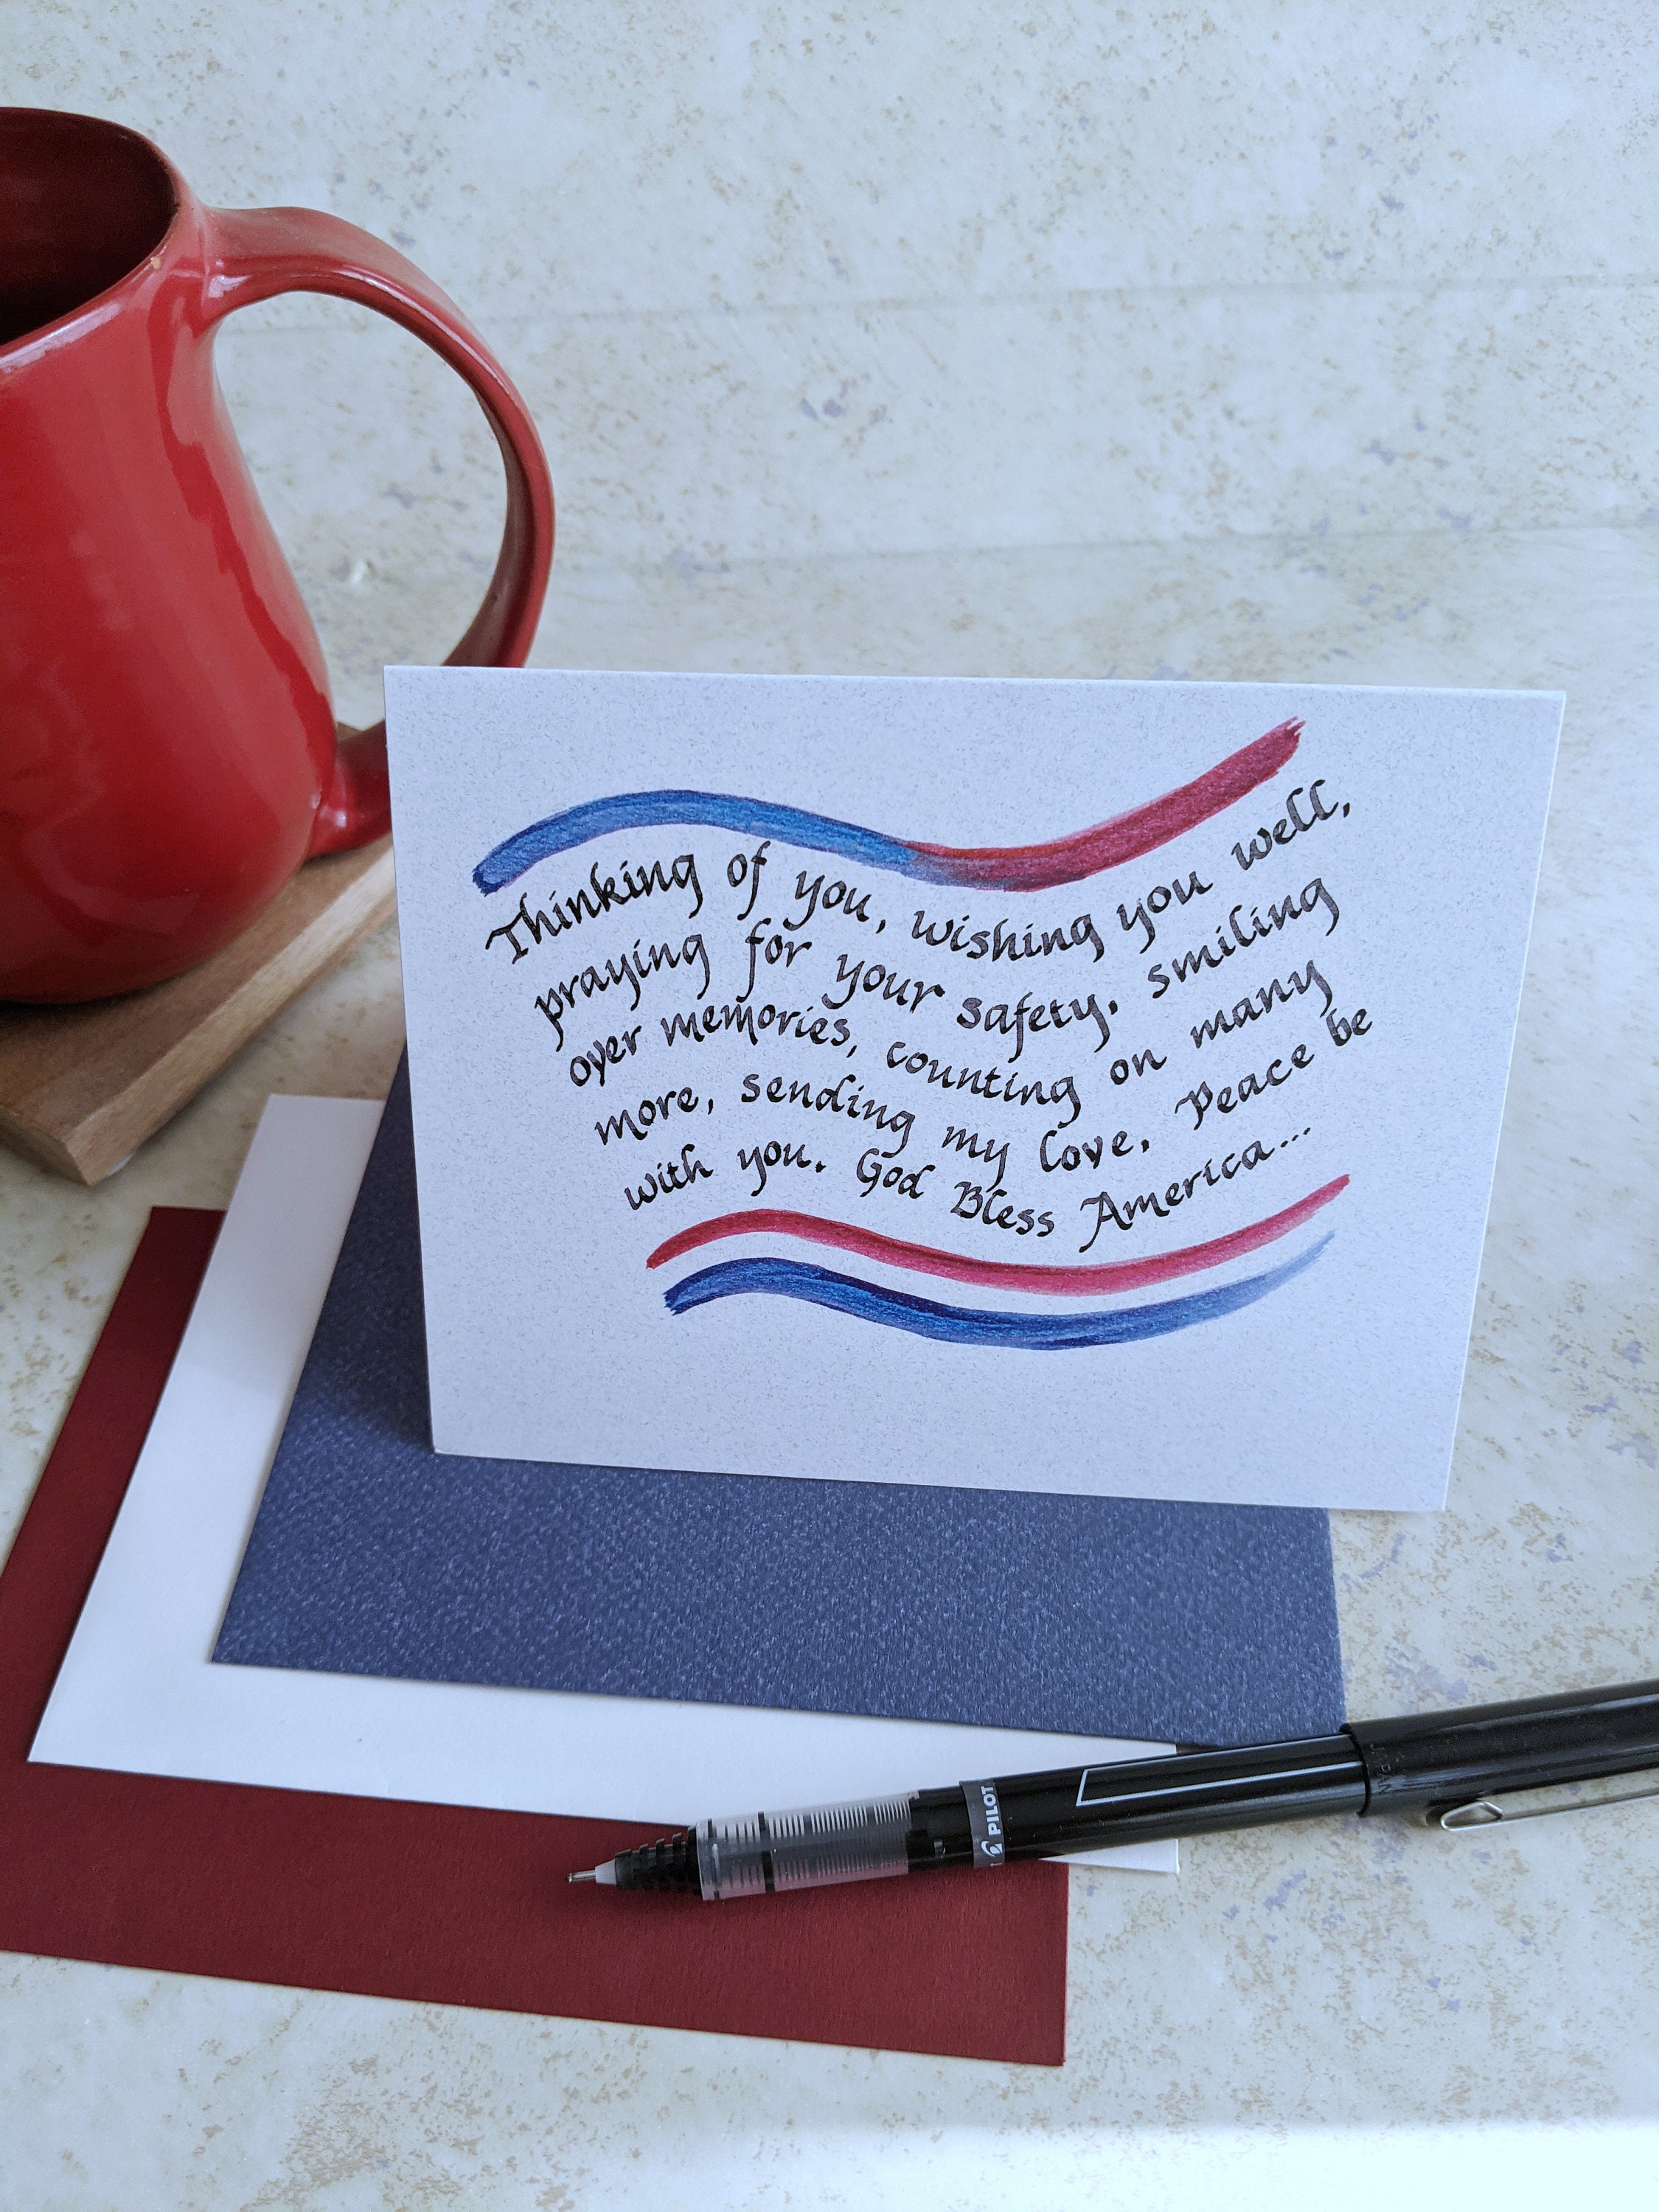 Thinking of you, wishing you well,
praying for your safety, smiling
over memories, counting on many
more, sending my love. Peace be
with you. God Bless America...
PILOT
JAPAN